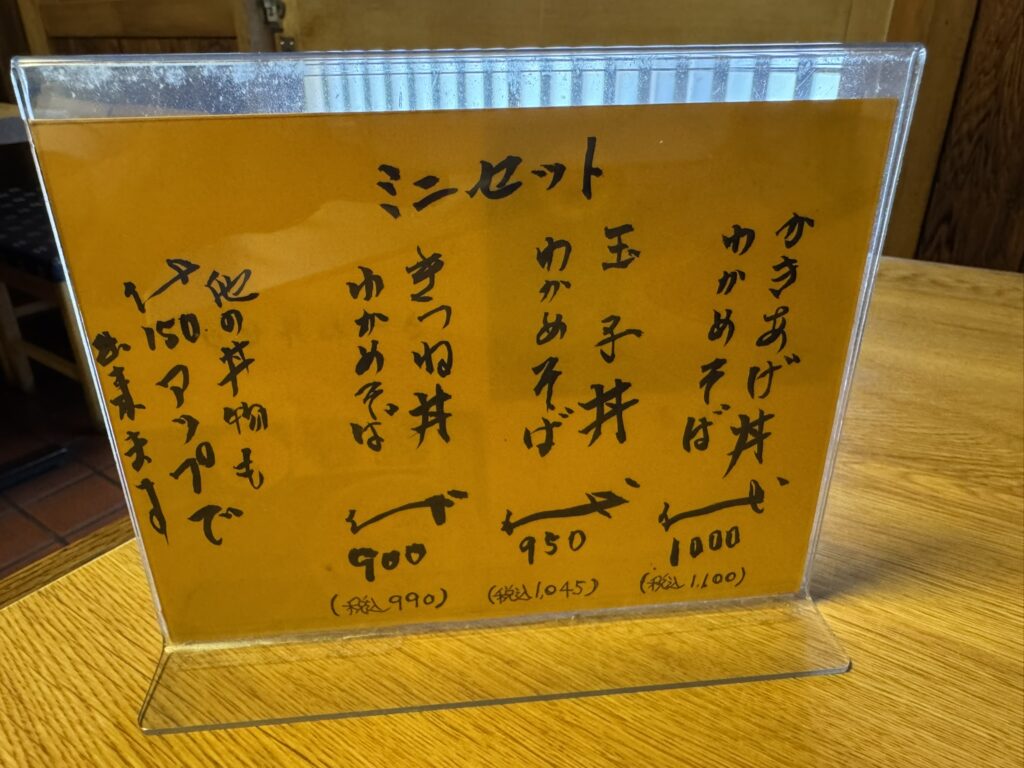 ミニセット
かきあげ丼
わかめそば
1000
(税込1,100)
玉子丼
わかめそば
950
(税込1,045)
きつね丼
わかめそば
900
(税込990)
他の丼物も
150アップで
出来ます